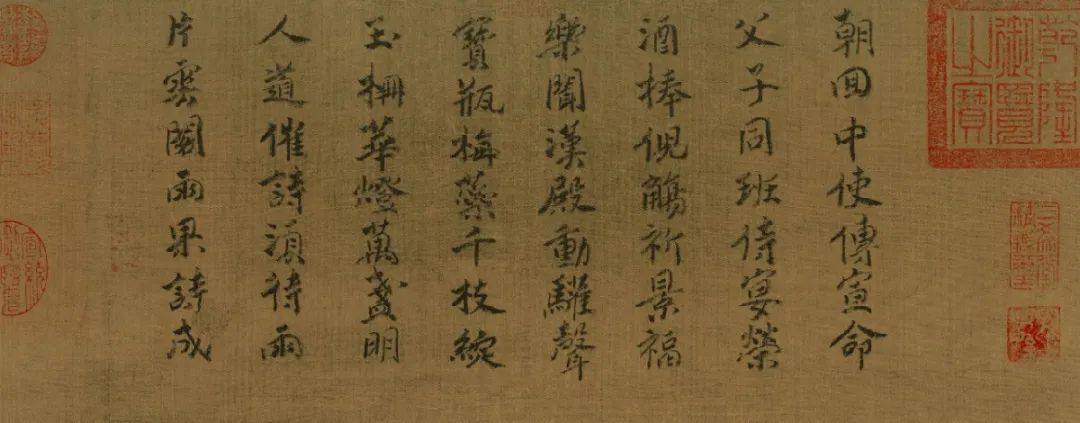 朝回中使傳宣命
父子同班侍宴榮
酒捧倪觴祈景福
樂聞漢殿動驩聲
寶瓶梅蘂千枝綻
玉柵華燈萬盞明
人道催詩須待雨
片雲閣雨果詩成
乾隆御覽之寶